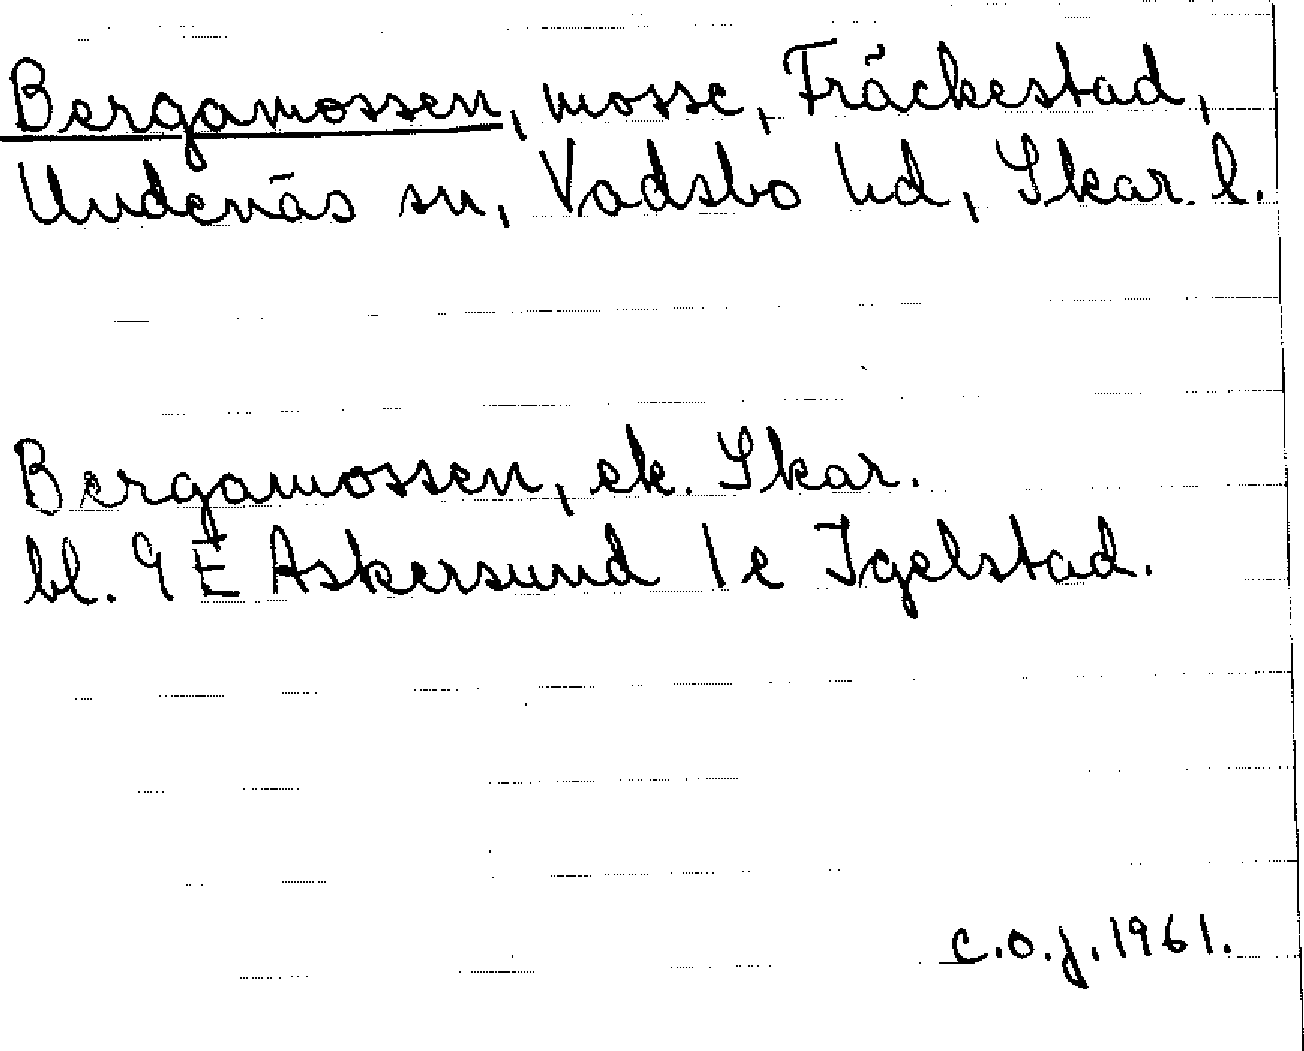 Bergamossen, mosse, Fräckestad,
Undenäs sn, Vadsbo hd, Skar. l.
Bergamossen, ek. Skar.
bl. 9 E Askersund 1 e Igelstad.
C.O.J. 1961.